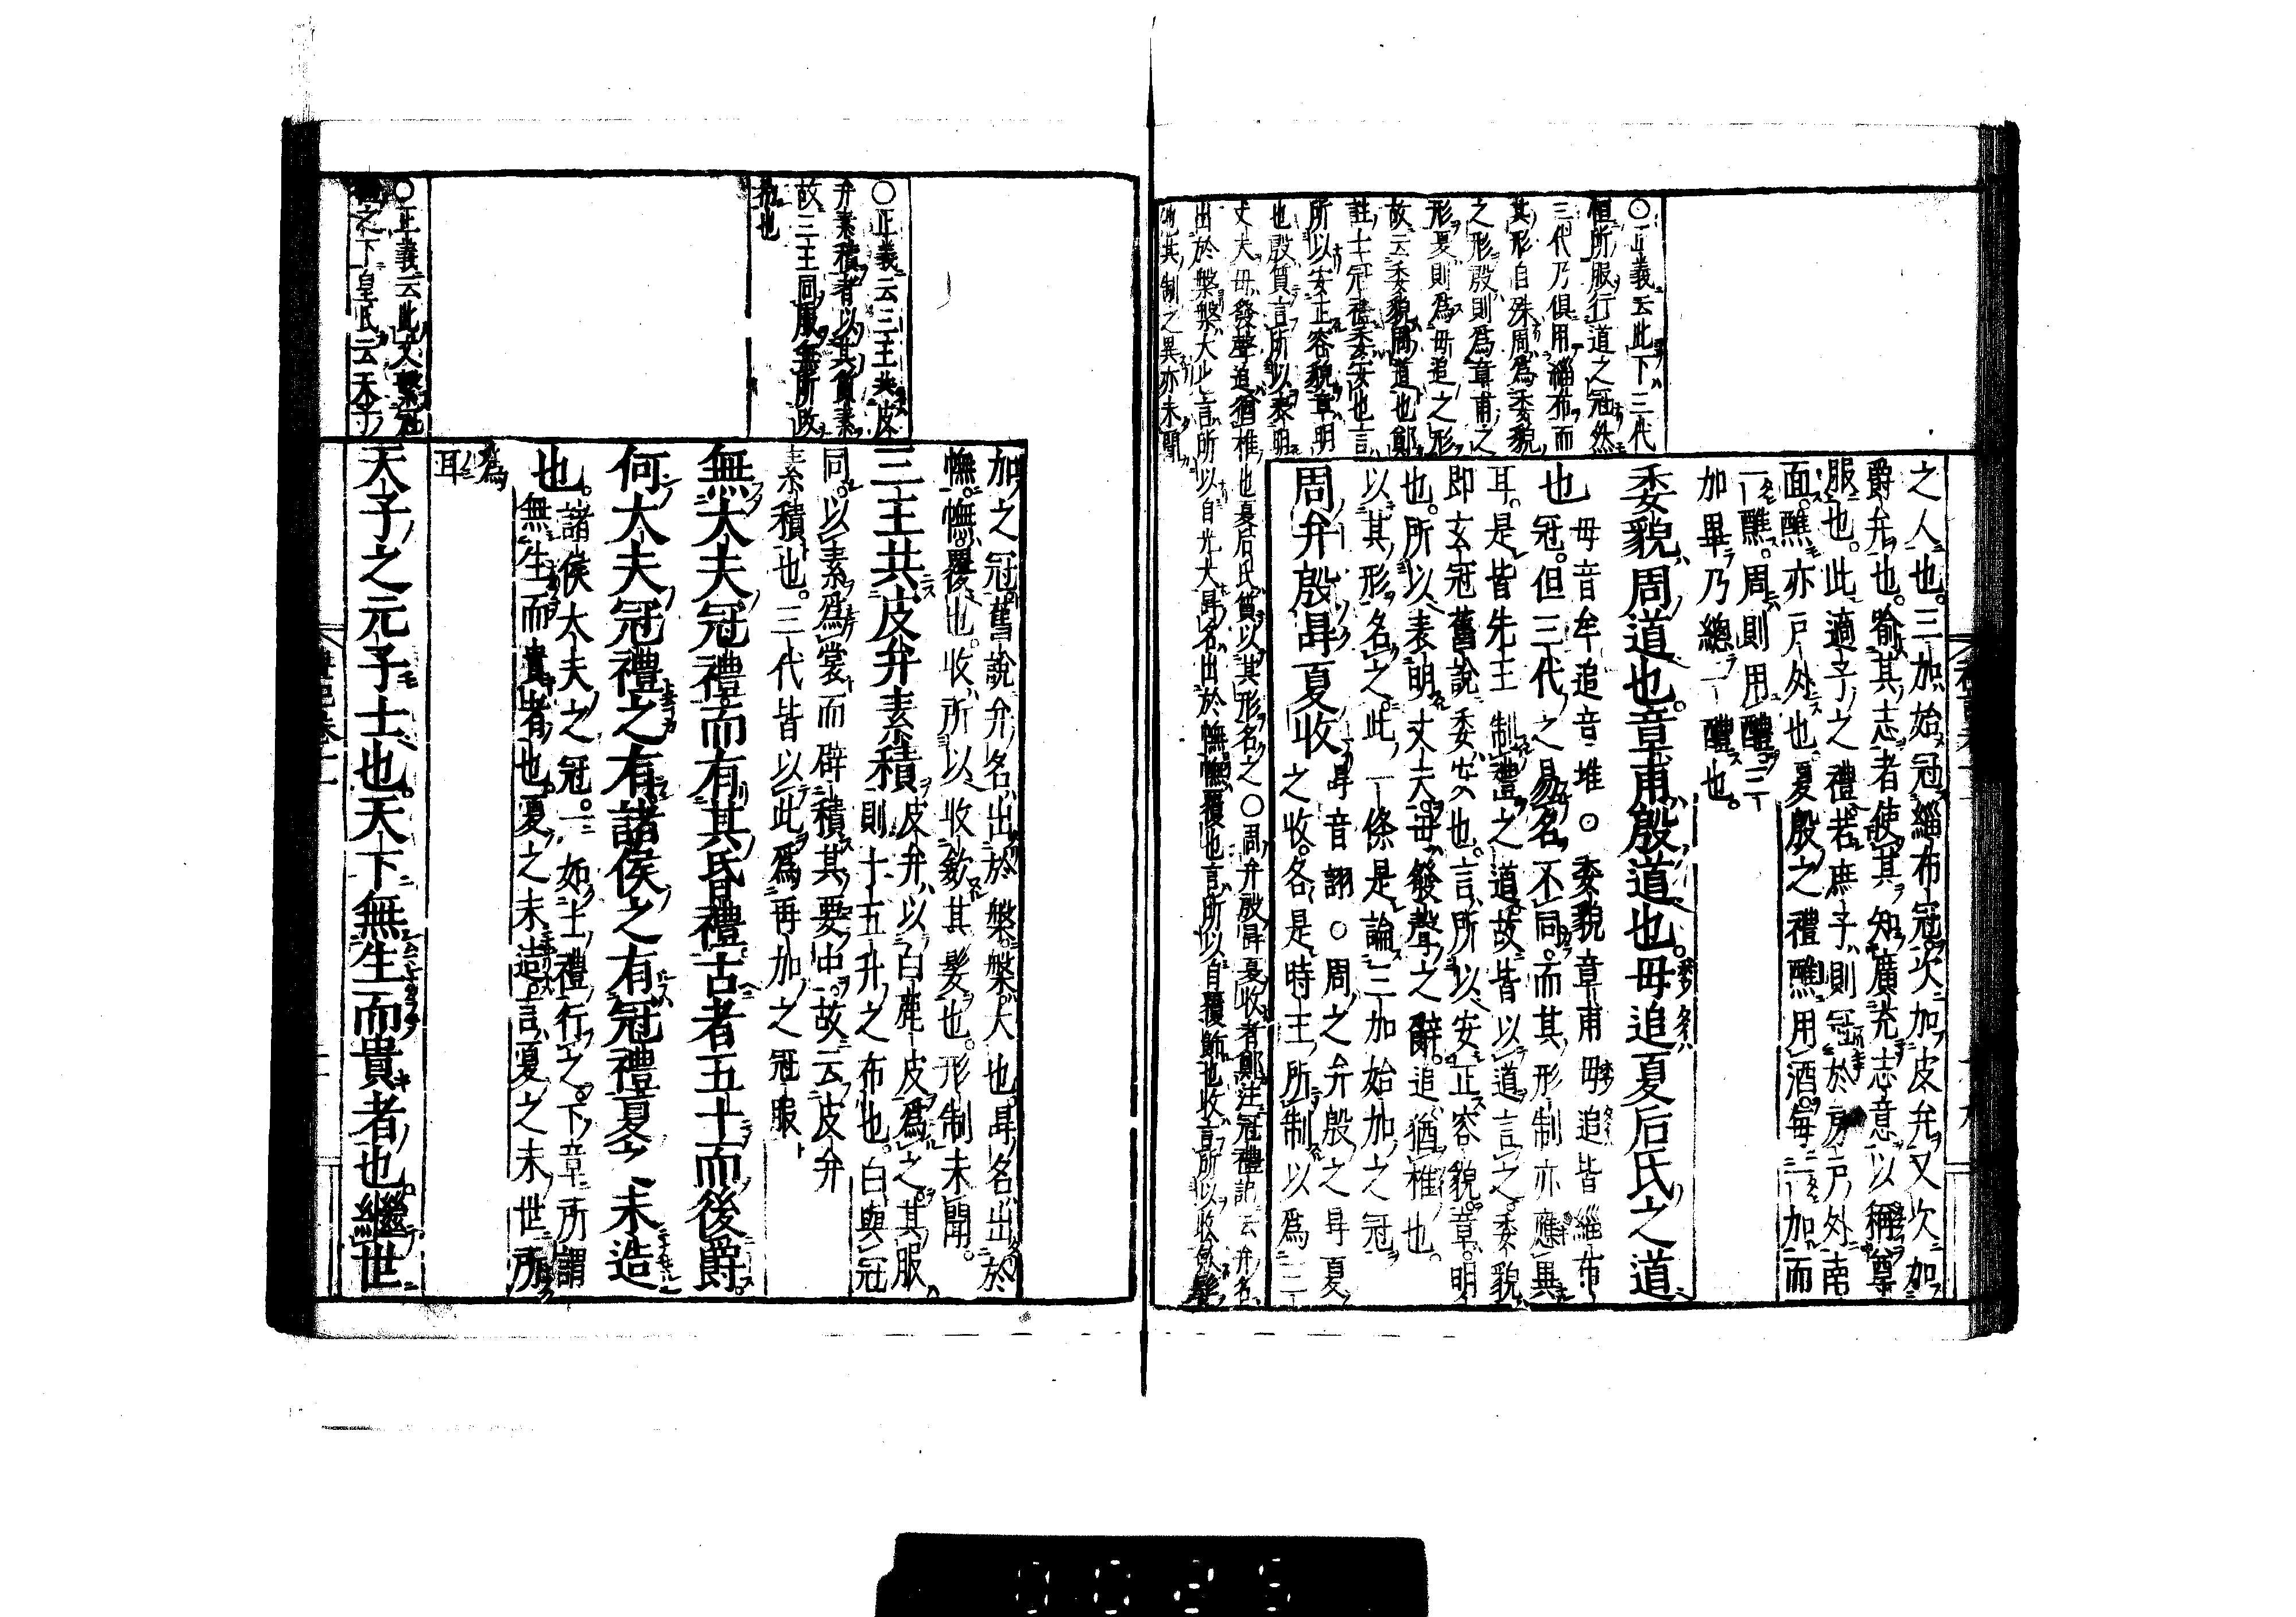 之人也。三加始冠緇布冠。次加皮弁又次加
爵弁也。喻其志者使其知廣充志意以稱尊
服也。此適子之禮若庶子則冠於房戶外南
面。醮亦戶外也。夏殷之禮醮用酒。每一加而
一醮。周則用醴三
加畢乃總一醴也。
委貌周道也。章甫殷道也。毋追夏后氏之道
也
毋音牟追音堆○委貌章甫毋追皆緇布
冠。但三代之易名不同。而其形制亦應異
耳。是皆先王制禮之道。故皆以道言之。委貌
即玄冠舊說委安也。言所以安正容貌。章。明
也。所以表明丈夫。毋發聲之辭。追猶椎也。
以其形名之。此一條是論三加始加之冠
周弁殷冔夏收
冔音詡○周之弁殷之冔夏
之收。各是時王所制以爲三
○正義云此下三代
恒所服行道之冠然
三代乃俱用緇布而
其形自殊周爲委貌
之形殷則爲章甫之
形夏則爲毋追之形
故云委貌周道也鄭
註士冠禮委安也言
所以安正容貌章明
也殷質言所以表明
丈夫毋發聲追猶椎也夏后氏質以其形名之○周弁殷冔夏收者鄭注冠禮記云弁名
出於槃槃大也言所以自光大冔名出於幠幠覆也言所以自覆飾也收言所以收斂髮
也其制之異亦未聞
加之冠。舊說弁名出於槃。槃。大也。冔名出於
幠。幠。覆也。收所以收斂其髮也。形制未聞。
三王共皮弁素積
皮弁以白鹿皮爲之。其服
則十五升之布也。白與冠
同。以素爲裳而辟積其要中。故云皮弁
素積也。三代皆以此爲再加之冠服
無大夫冠禮而有其昏禮。古者五十而後爵
何大夫冠禮之有。諸侯之有冠禮夏之末造
也。
諸侯大夫之冠。一如士禮行之。下章所謂
無生而貴者也。夏之末造。言夏之末世所
爲
耳
天子之元子士也。天下無生而貴者也。繼世
○正義云三王共皮
弁素積者以其質素
故三王同服無所改
易也
○正義云此文繫冠
之下皇氏云天子